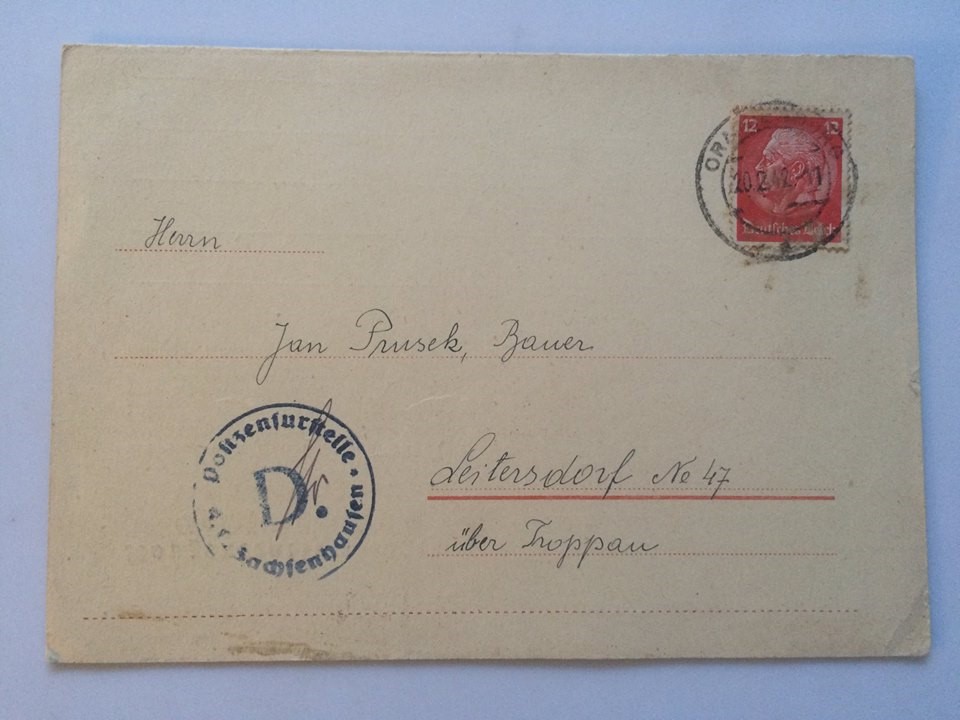 12 12
20.2.42.-11
Deutsches Reich
Herrn
Jan Prusek, Bauer
Postzensurstelle
D.
K. L. Sachsenhausen
Leitersdorf No 47
über Troppau